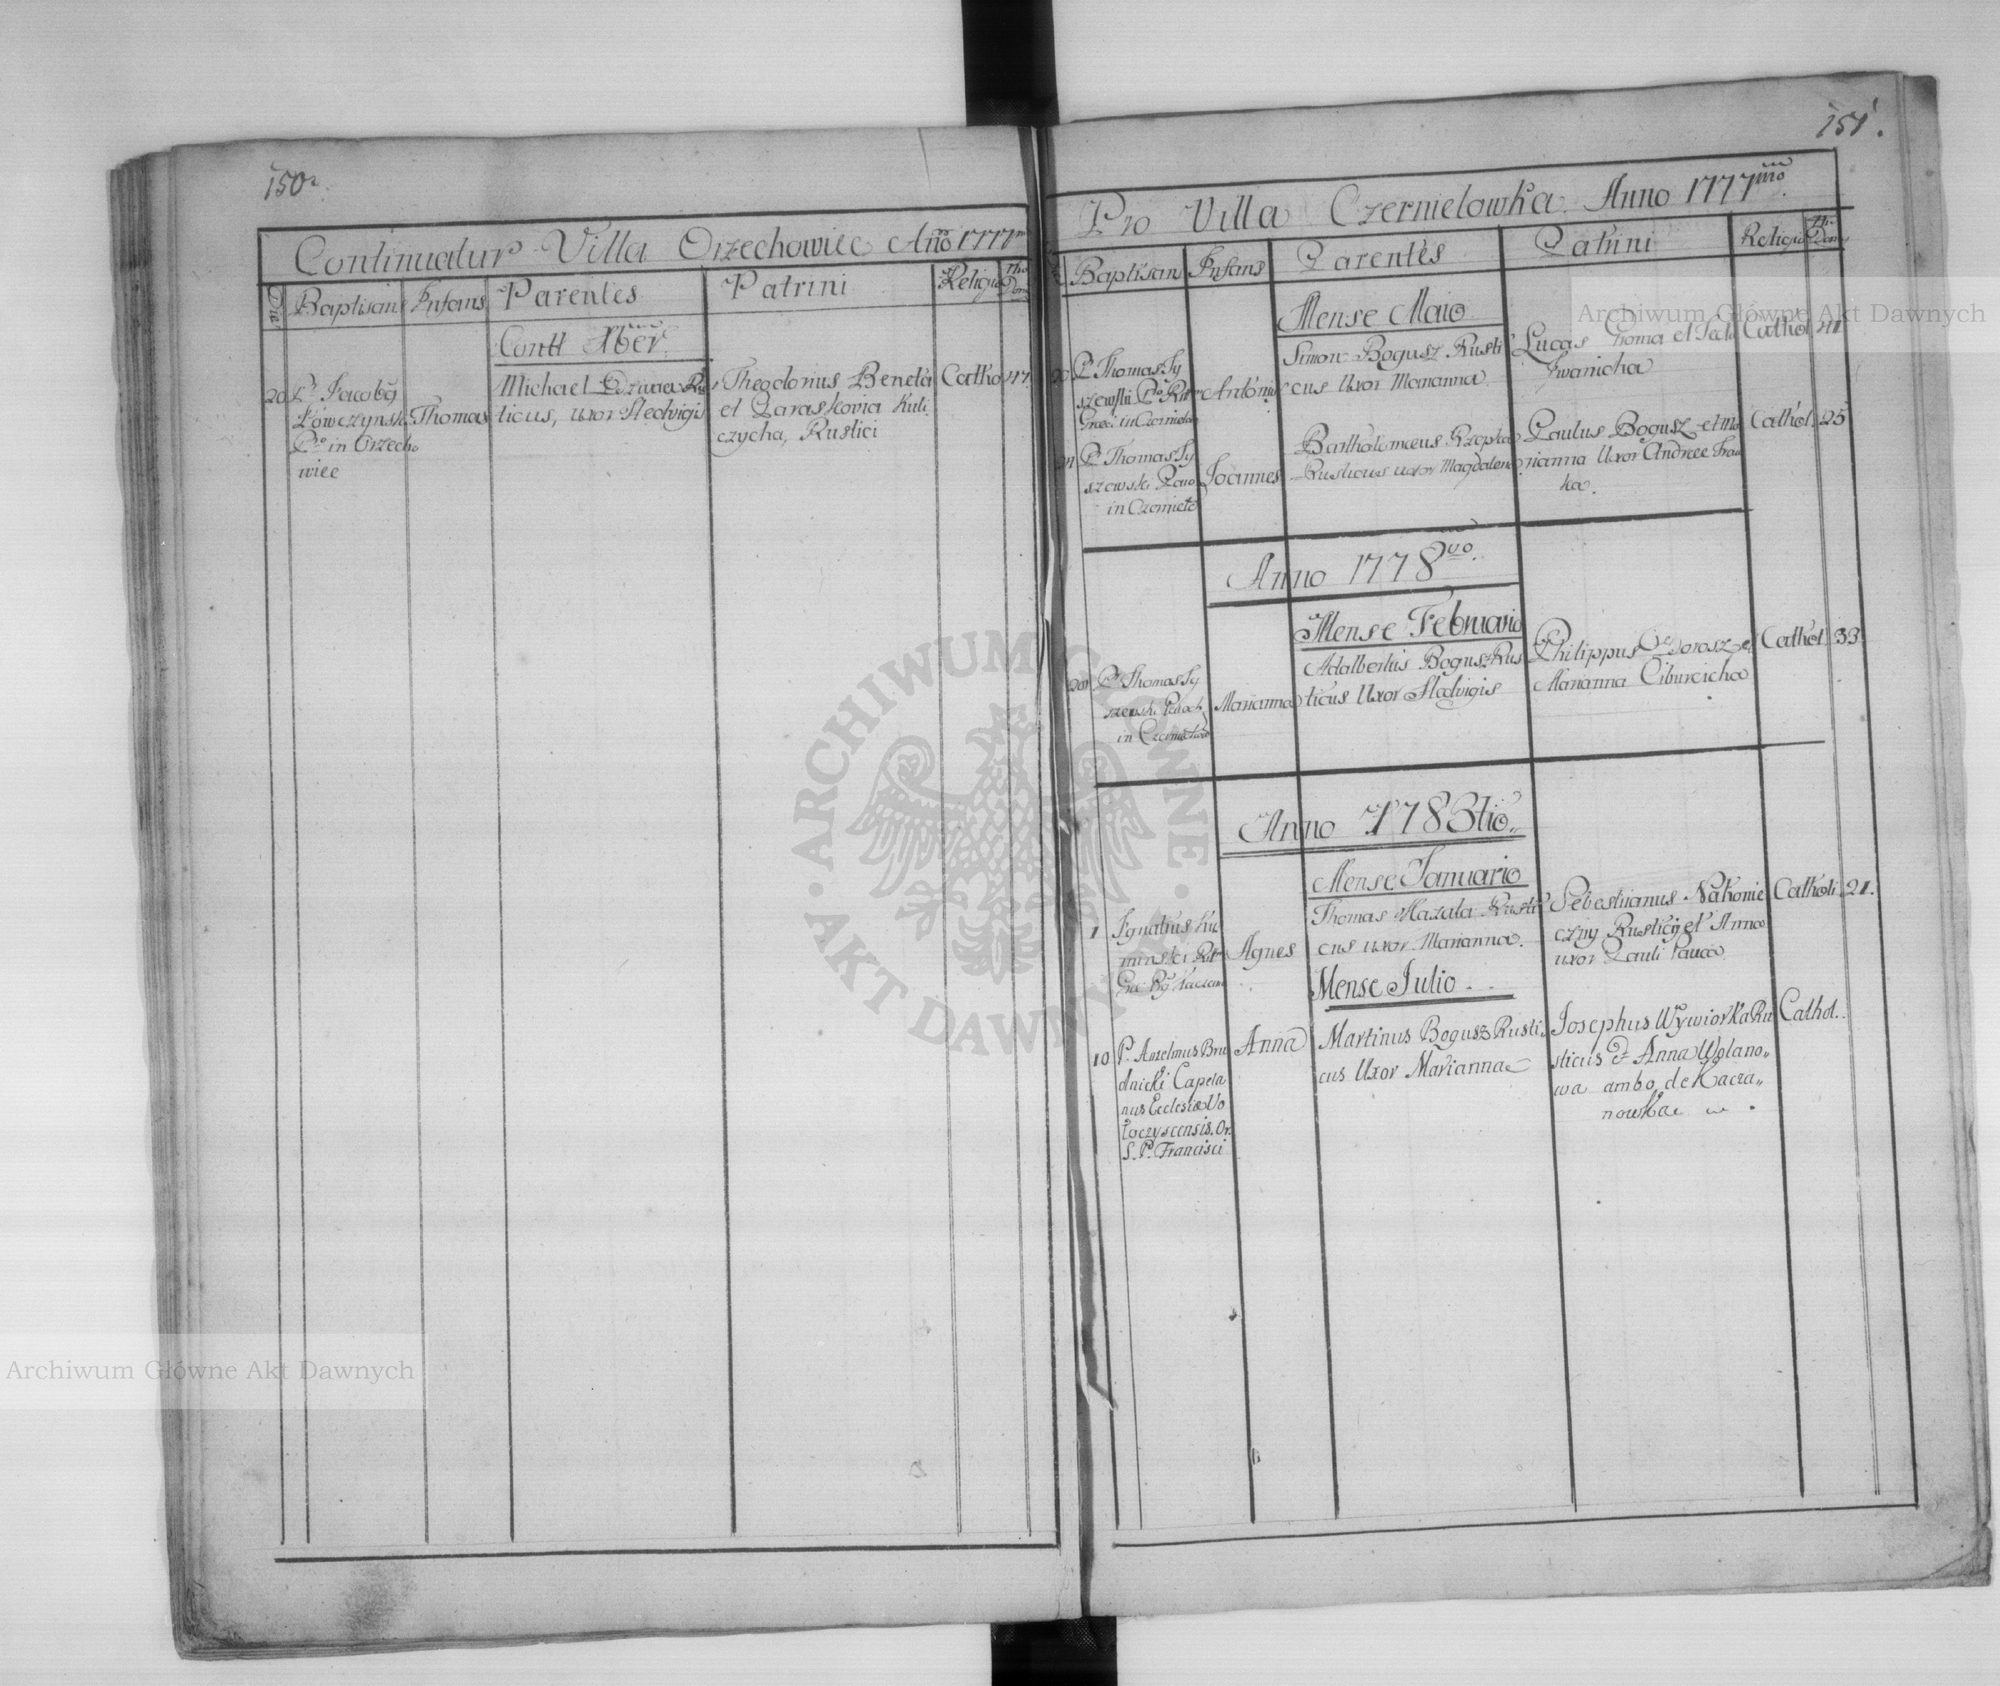 150.
Continuatur Villa Orzechowiec Año 1777
Die Baptisans Infans Parentes Patrini Religio Nro Dom
Contt Xber
20 Pr Jacoby
Łowczynski
Pro in Orzecho
wiec
Thomas
Michael Rus
ticus, uxor Hedvigis
Theodorius Beneta
et Paraskovia Kuli
czycha, Rustici
Catho
151.
Pro Villa Czernielowka Anno 1777mo
Baptisans Infans Parentes Patrini Religio Nro Domy
Mense Maio
20 Pr Thomas Ty
szewski Pr Rit
Græci in Czernielow
Antonius
Simon Bogusz Rusti
cus Uxor Marianna
Lucas
Iwanicha
Cathol 41
Pr Thomas Ty
szewski Paro
in Czerniele
Joannes
Bartholomæus Rzepka
Rusticus uxor Magdalena
Paulus Bogusz et Ma
rianna Uxor Andreæ
ka.
Cathol. 25
Anno 1778vo.
Mense Februario
Pr Thomas Ty
szewski Paroch
in Czernielow
Marianna
Adalbertus Bogusz Rus
ticus Uxor Hedvigis
Philippus et
Marianna Ciburcicha
Cathol. 33.
Anno 1783tio.
Mense Januario
1 Ignatius
Agnes
Thomas Mazala Rusti
cus uxor Marianna.
Sebastianus Nakonie
czny Rusticy et Anna
uxor Pauli
Catholi. 21.
Mense Julio
10 P. Anzelmus Bru
dnicki Capela
nus Ecclesiæ Wo
łoczyscensis. Or.
S. P. Francisci
Anna
Martinus Bogusz Rusti
cus Uxor Marianna
Josephus Wywiorka Ru
sticus & Anna Wolano„
wa ambo de Kacza„
nowka
Cathol.
Archiwum Główne Akt Dawnych
Archiwum Główne Akt Dawnych
ARCHIWUM GŁÓWNE AKT DAWNYCH